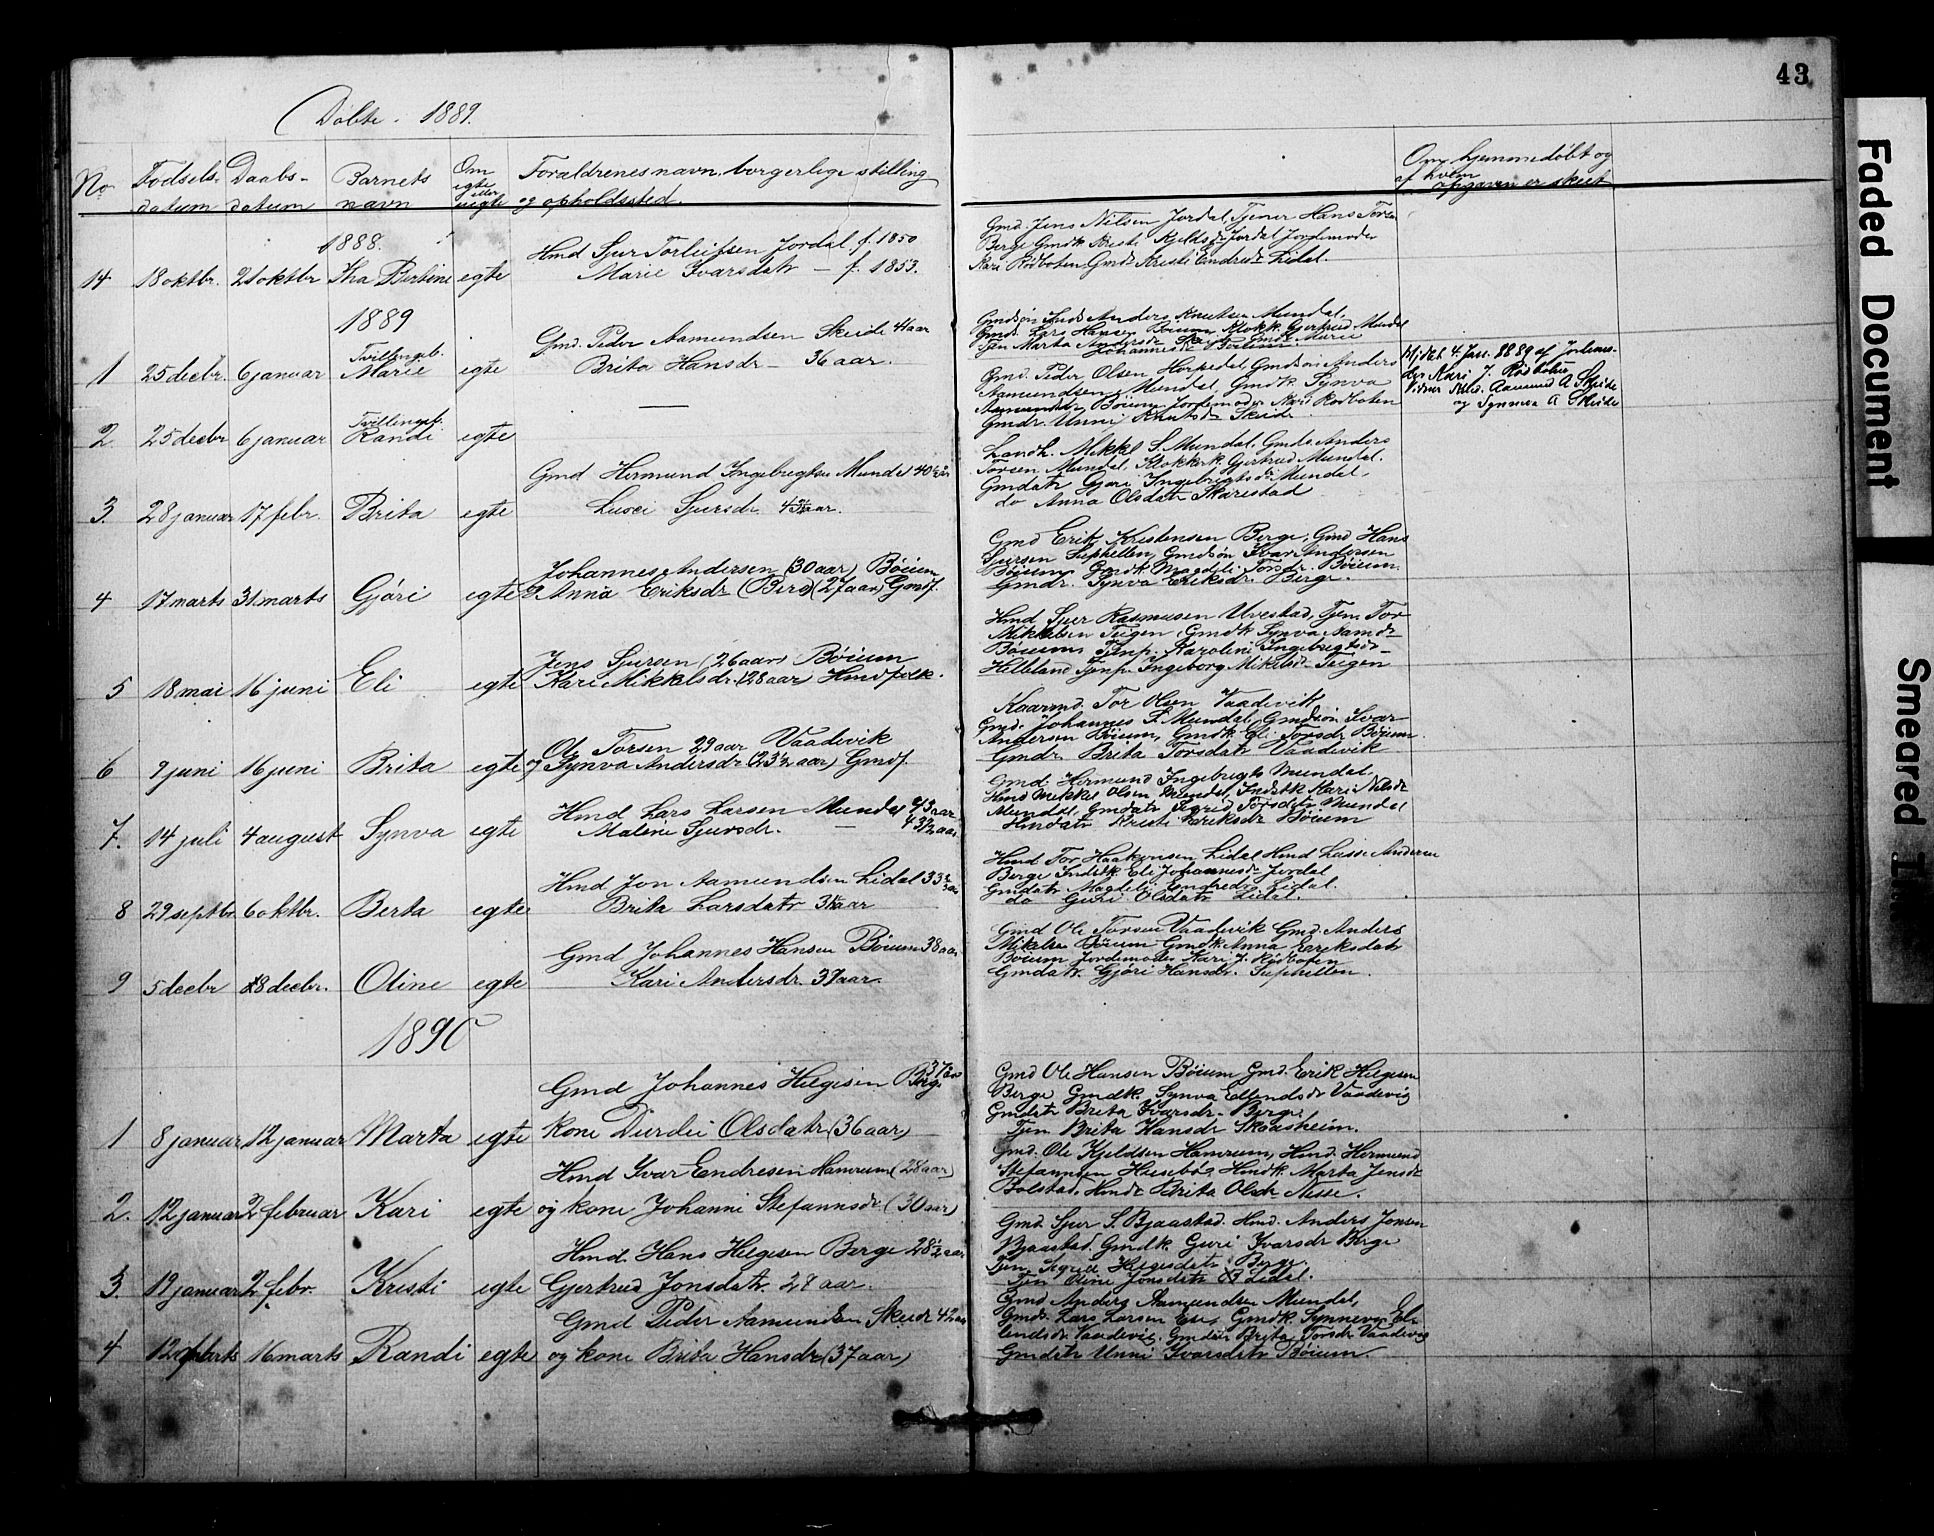 43
Døbte. 1889.
No
Fødsels-
datum
Daabs-
datum
Barnets
navn
Om
egte
eller
uegte
Foraldrenes navn, borgerlige stilling
og opholdssted.
Om hjemmedøbt og
af hvem
opgaven er skeet
1888.
14 18 oktbr. 21 oktbr Ina Bertine egte
Hmd Sjur Torleifsen Jordal f. 1850
Marie Ivarsdatr — f. 1853.
Gmd. Jens Nilsen Jordal, Tjener Hans Torsen
Berge Gmdk Kristi Kjeldsdr Jordal Jordemoder
Kari Rødboten Gmdr Kristi Endresdr Lidal.
1889
1 25 decbr. 6 januar Tvillingeb. Marie egte
Gmd. Peder Aamundsen Skeide 41 aar
Brita Hansdr — 36 aar.
Gmdsøn Anders Knutsen Mundal,
Gmd. Lars Hansen Bøium, Klokk. Gjertrud Mundal
Tjen Marta Andersdr Skeide Gmdr Marie
Johannesdr Bøium
Hjdbt 4. Jan. 1889 af Jordemo-
der Kari J. Rødboten
Vidner Gmd. Aamund A Skeide
og Synneva A Skeide
2. 25 decbr 6 januar Tvillingeb. Randi egte
—
Gmd. Peder Olsen Harpedal Gmdsøn Anders
Aamundsen Mundal, Gmdk. Synva
Bøium Jordemoder Kari Rødboten
Gmdr. Unni Knutsdr Skeide
3. 28 januar 17 febr. Brita egte
Gmd Hermund Ingebrigtsen Mundal 40½ aar
Lussi Sjursdr. 43¾ aar.
Landh. Mikkel S. Mundal, Gmds. Anders
Torsen Mundal. Klokkerk. Gjertrud Mundal.
Gmdatr Gjøri Ingebrigtsdr Mundal,
do Anna Olsdatr Skarestad
4 17 marts 31 marts Gjøri egte
Johannes Andersen (30 aar) Bøium
Anna Eriksdr (Berge) (27 aar) Gmdf.
Gmd Erik Kristensen Berge, Gmd Hans
Sjursen Suphellen, Gmdsøn Ivar Andersen
Bøium, Gmdk. Magdeli Torsdr. Bøium.
Gmdr. Synva Eriksdr. Berge.
5 18 mai 16 juni Eli egte
Jens Sjursen (26 aar) Bøium
Kari Mikkelsdr. (28 aar) Hmdfolk.
Hmd Sjur Rasmussen Ulvestad, Tjen Tor
Mikkelsen Teigen, Gmdk Synva Aamdr
Bøium, Tjnp. Karoline Ingebrigtsdr
Helleland Tjnp. Ingeborg Mikkelsdr Teigen
6 9 juni 16 juni Brita egte
Ole Torsen 29 aar Vaadevik
og Synva Andersdr (23½ aar) Gmdf.
Kaarmd. Tor Olsen Vaadevik
Gmd. Johannes S. Mundal, Gmdsøn Ivar
Andersen Bøium, Gmdk Eli Torsdr Bøium.
Gmdr. Brita Torsdatr Vaadevik
7. 14 juli 4 august Synva egte
Hmd Lars Larsen Mundal 43 aar
Malene Sjursdr. — 43½ aar.
Gmd. Hermund Ingebrigts Mundal.
Hmd Mikkel Olsen Mundal, Indrstk Kari Nilsdr
Mundal, Gmdatr Sigrid Torsdatr Mundal
Hmdatr Kristi Eriksdr Bøium
8 29 septbr. 6 oktbr. Berta egte
Hmd Jon Aamundsen Lidal 33½ aar
Brita Larsdatr 31 aar
Hmd Tor Haakonsen Lidal Hmd Lasse Andersen
Berge Indstk Eli Johannesdr Jordal
Gmdatr Magdeli Endredr Lidal.
do Guri Olsdatr Lidal.
9 5 decbr 28 decbr. Oline egte
Gmd Johannes Hansen Bøium 38 aar
Kari Andersdr. 37 aar.
Gmd Ole Torsen Vaadevik Gmd. Anders
Mikelsen Bøium Gmdk. Anna Eriksdatr
Bøium Jordemoder Kari J. Rødboten
Gmdatr. Gjøri Hansdr. Suphellen.
1890
1 8 januar 12 januar Marta egte
Gmd Johannes Helgesen Berge 37 aar
kone Durdei Olsdatr (36 aar)
Gmd Ole Hansen Bøium Gmd. Erik Helgesen
Berge Gmdk. Synva Ellendsdr Vaadevig
Gmdatr Brita Ivarsdr. Berge,
Tjen Brita Hansdr Skaasheim.
2. 12 januar 2 februar Kari egte
Hmd Ivar Endresen Hamrum (28 aar)
og kone Johanne Stefansdr (30 aar)
Gmd. Ole Kjeldsen Hamrum, Hmd. Hermund
Stefansen Husebø, Hmdk. Marta Jensdr
Bolstad. Hmdr Brita Olsdr Nesse.
3. 19 januar 2 febr. Kristi egte
Hmd. Hans Helgesen Berge 28½ aar
Gjertrud Jonsdatr. 28 aar.
Gmd. Sjur S. Bjaastad. Hmd. Anders Jonsen
Bjaastad. Gmdk. Guri Ivarsdr Berge
Tjen Sigrid Helgesdatr Berge.
Tjen Oline Jonsdatr Lidal.
4 12 marts 16 marts Randi egte
Gmd Peder Aamundsen Skeide 42 aar
og kone Brita Hansdr (37 aar)
Gmd Anders Aamundsen Mundal,
Gmd. Lars Larsen Ese, Gmdk. Synneva El-
lendsdr Vaadevig. Gmdatr Brita Torsdr Vaadevig
Gmdatr Unni Ivarsdatr Bøium.
Faded Document
Smeared